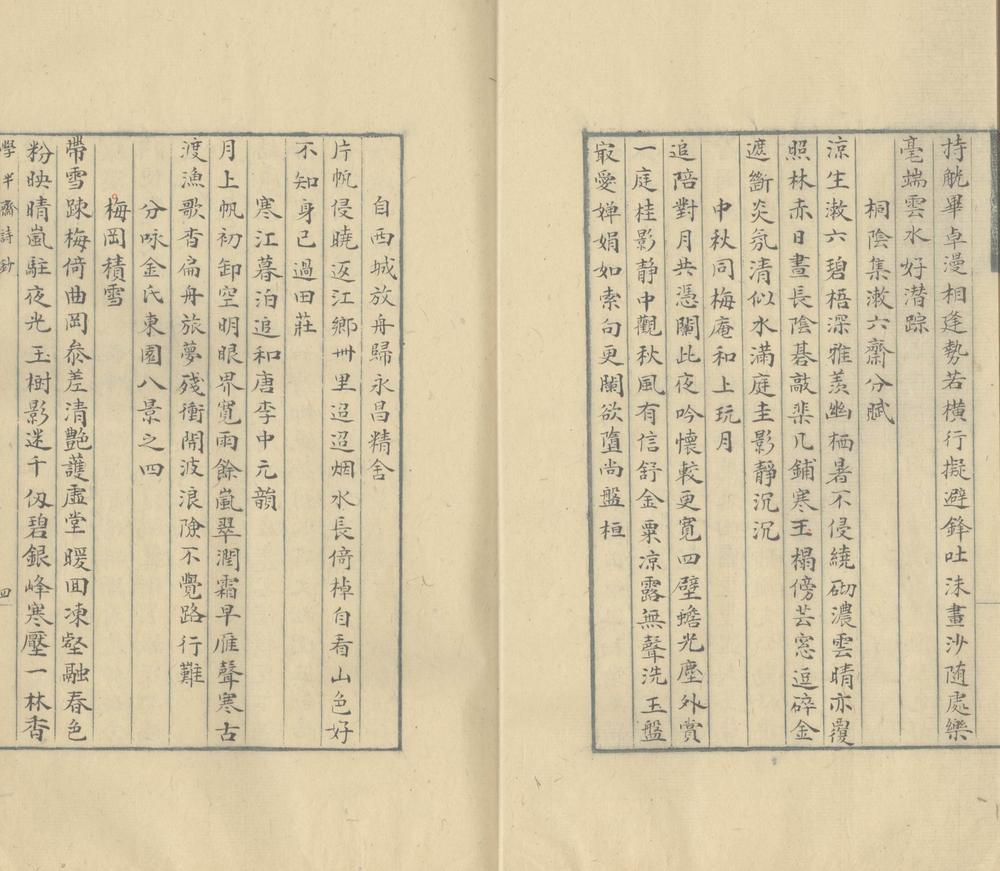 持觥畢卓漫相逢勢若橫行擬避鋒吐沫畫沙随處樂
毫端雲水好潜踪
桐陰集漱六齋分賦
涼生漱六碧梧深雅羨幽栖暑不侵繞砌濃雲晴亦覆
照林赤日晝長陰碁敲棐几鋪寒玉榻傍芸窓逗碎金
遮斷炎氛清似水滿庭圭影靜沉沉
中秋同梅庵和上玩月
追陪對月共憑闌此夜吟懷較更寬四壁蟾光塵外賞
一庭桂影靜中觀秋風有信舒金粟凉露無聲洗玉盤
㝡愛嬋娟如索句更闌欲墮尚盤桓
自西城放舟歸永昌精舍
片帆侵曉返江鄉卅里迢迢烟水長倚棹自看山色好
不知身已過田莊
寒江暮泊追和唐李中元韻
月上帆初卸空明眼界寬雨餘嵐翠潤霜早雁聲寒古
渡漁歌杳扁舟旅夢殘衝開波浪險不覺路行難
分咏金氏東園八景之四
梅岡積雪
帶雪踈梅倚曲岡叅差清艷護虛堂暖回凍壑融春色
粉映晴嵐駐夜光玉樹影迷千仭碧銀峰寒壓一林香
學半齋詩鈔
四